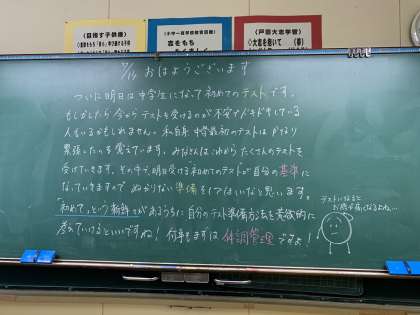 (目指す子供像)
(小中一貫学校教育目標)
志をもち
(戸田大志学習)
◇大志を抱いて (夢)
おはようございます
ついに明日は中学生になって初めてのテストです。
もしかしたら今からテストを受けるのが不安でドキドキしている
人もいるかもしれません。私自身中学最初のテストはかなり
緊張したのを覚えています。みなさんはこれからたくさんのテストを
受けていきます。その中で、明日受ける初めてのテストが自分の基準に
なっていきますので ぬかりない準備をしてほしいなと思います。
「初めて」という新鮮さがあるうちに自分のテスト準備方法を意欲的に
考えていけるといいですね! 何事もまずは体調管理ですよ!
テストになると
お腹が痛くなるよね…